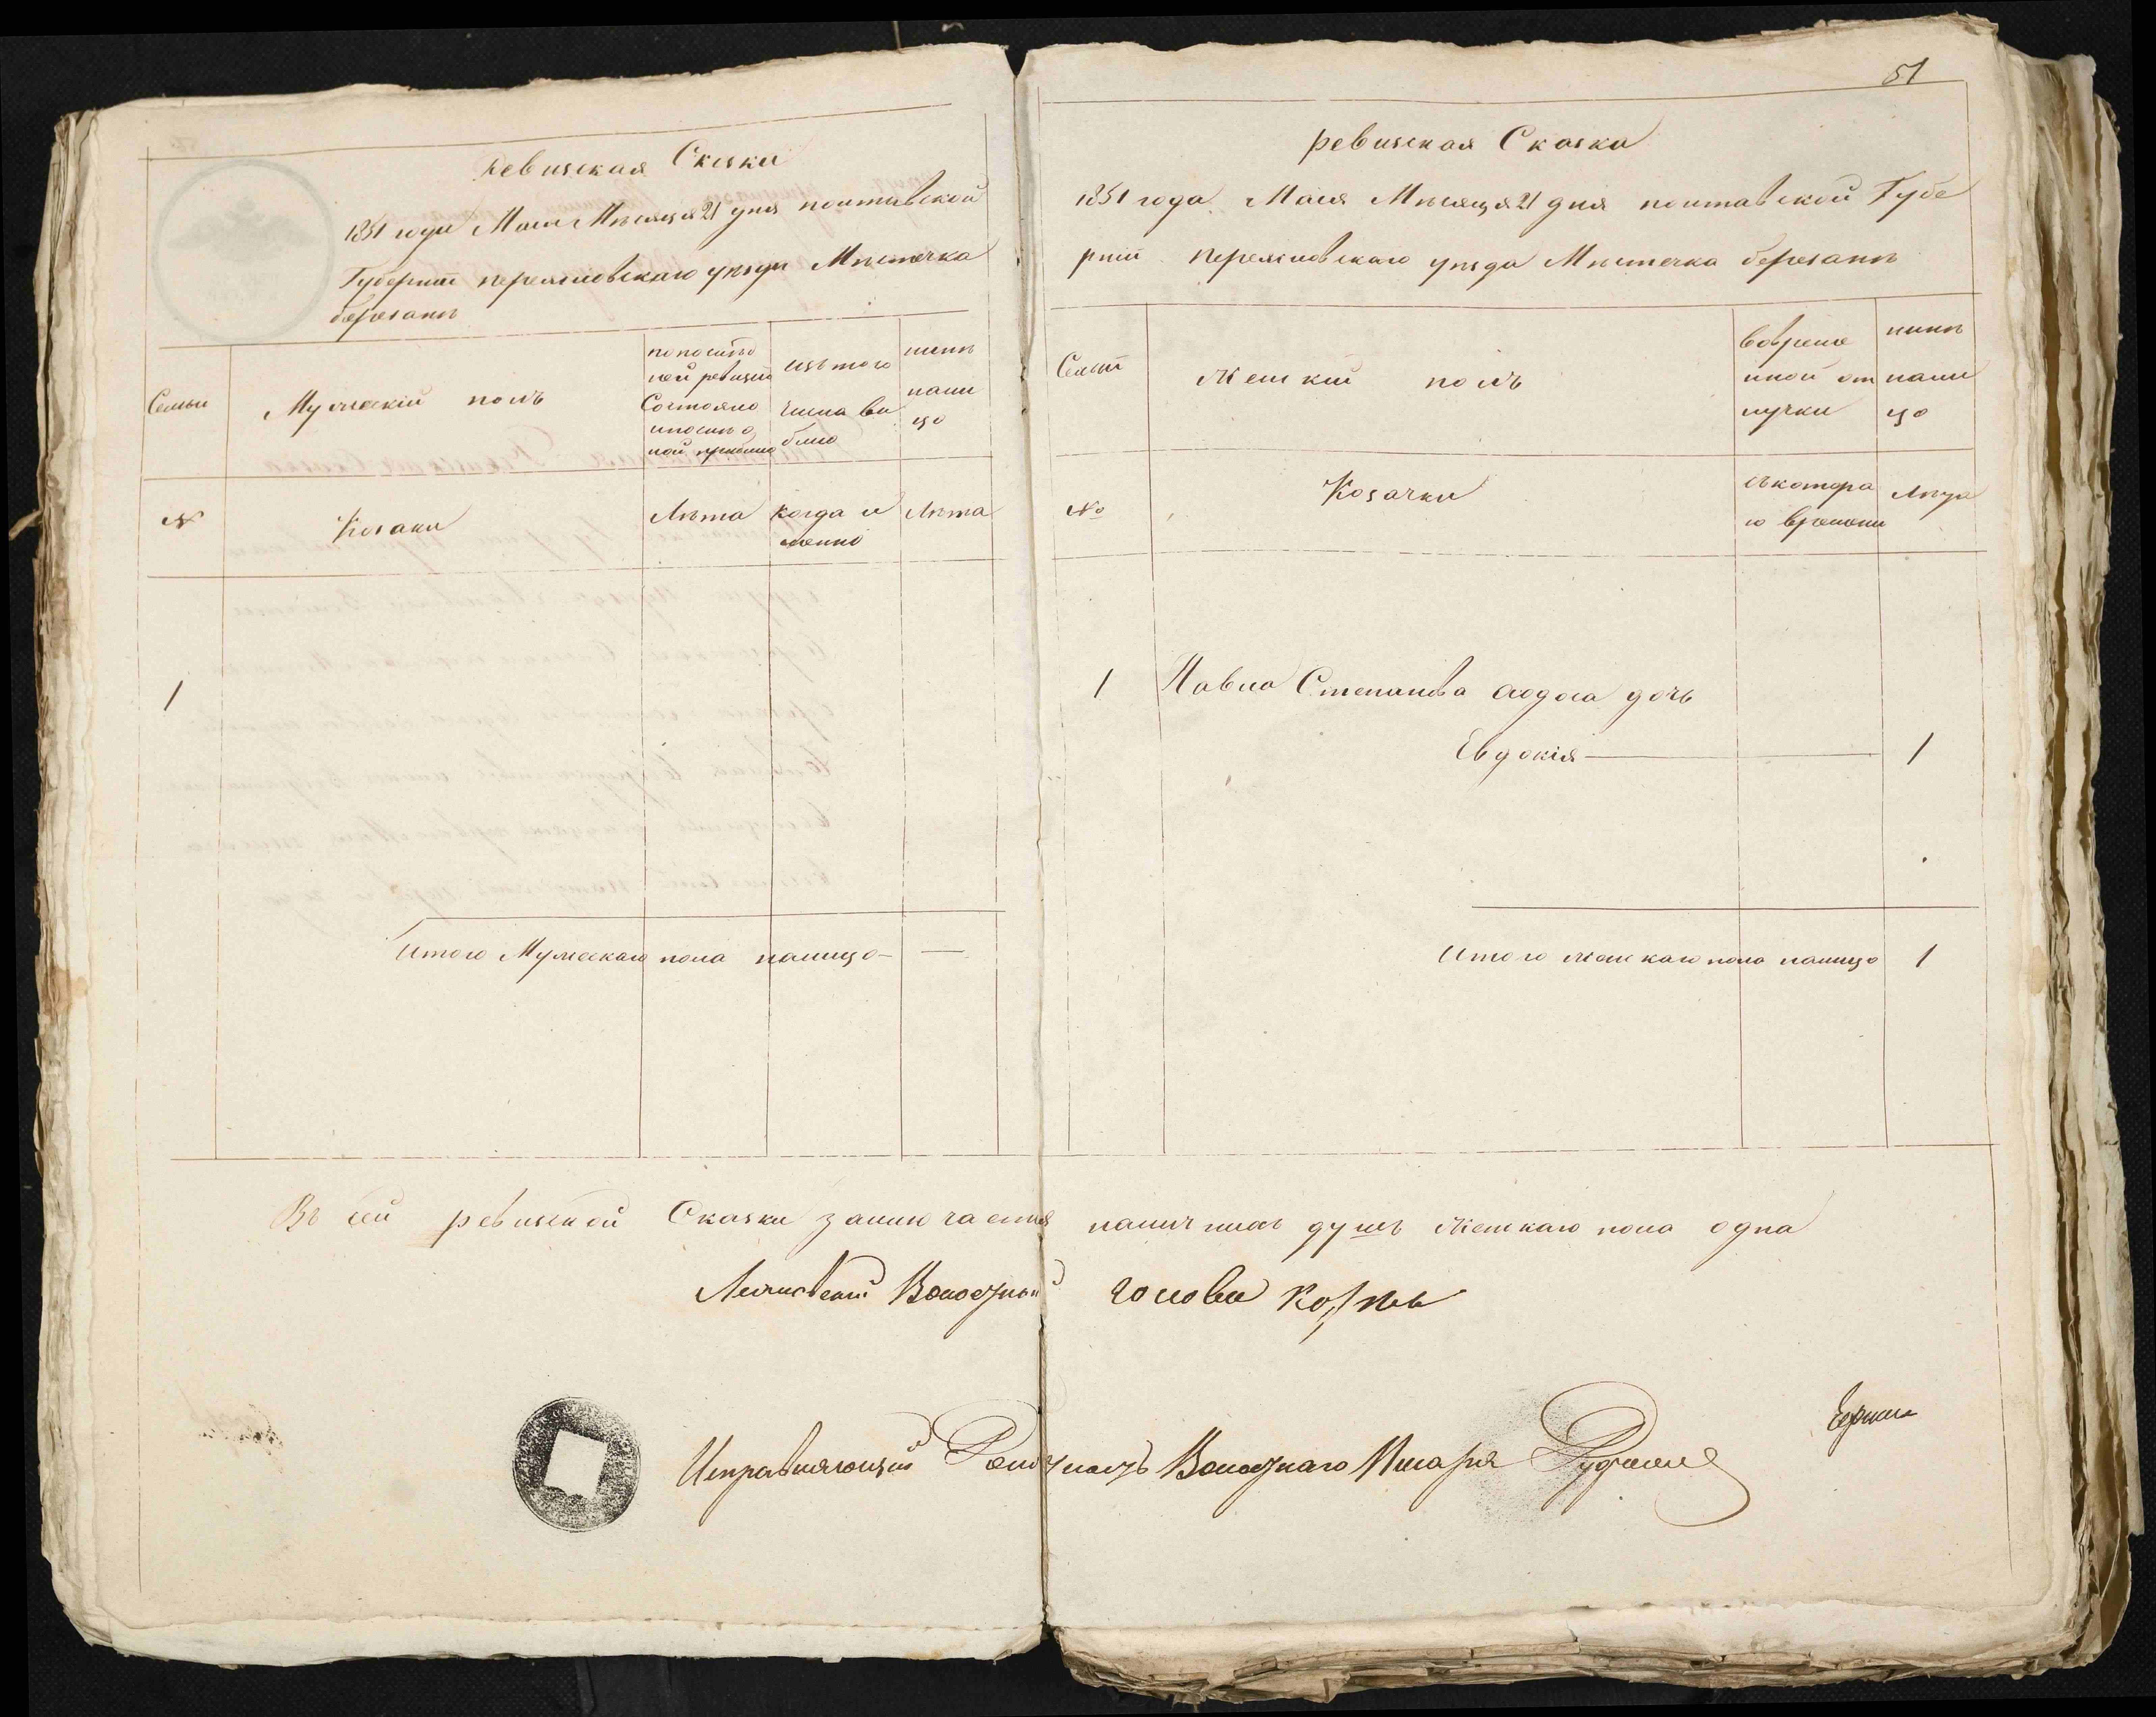 ревизская Сказка
1851 года Маия Мѣсяця 21 дня полтавской
Губернии переяславскаго уѣзда Мѣстечка
березани
Семьи
Мужескій полъ
по послѣд
ней ревизии
Состояло
и после о
ной прибыло
изъ того
числа вы
было
нынѣ
нали
цо
№
Козаки
Лѣта
когда и
менно
Лѣта
1
Итого Мужескаго пола налицо —
51
ревизская Сказка
1851 года Маия Мѣсяця 21 дня полтавской Губе
рнии переясловскаго уѣзда Мѣстечка березани
Семьи
Женский полъ
вовреме
нной от
лучки
нынѣ
нали
цо
№
Козачки
съ котора
го времени
Лѣта
1 Павла Степанова дочь
Евдокія — 1
Итого женскаго пола налицо 1
Въ сей ревизской Сказки заключается наличныхъ душъ женскаго пола одна
Волостной голова
Исправляющий Должность Волостнаго Писаря